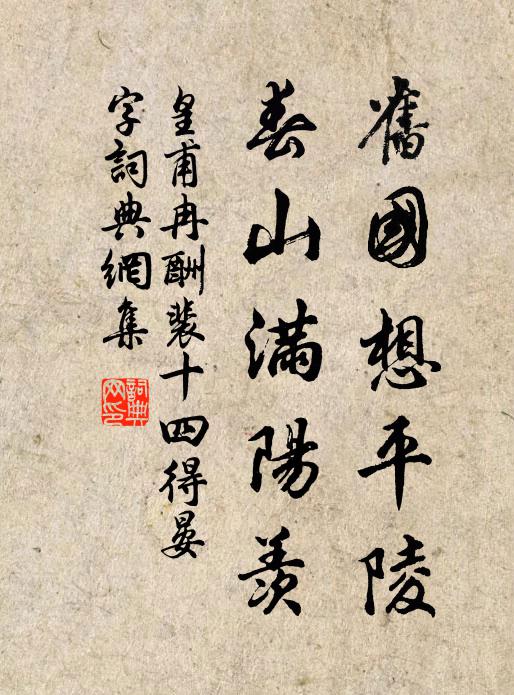 舊國想平陵
春山滿陽羨
皇甫冉酬裴十四得晏
字詞典網集
詞典
网印